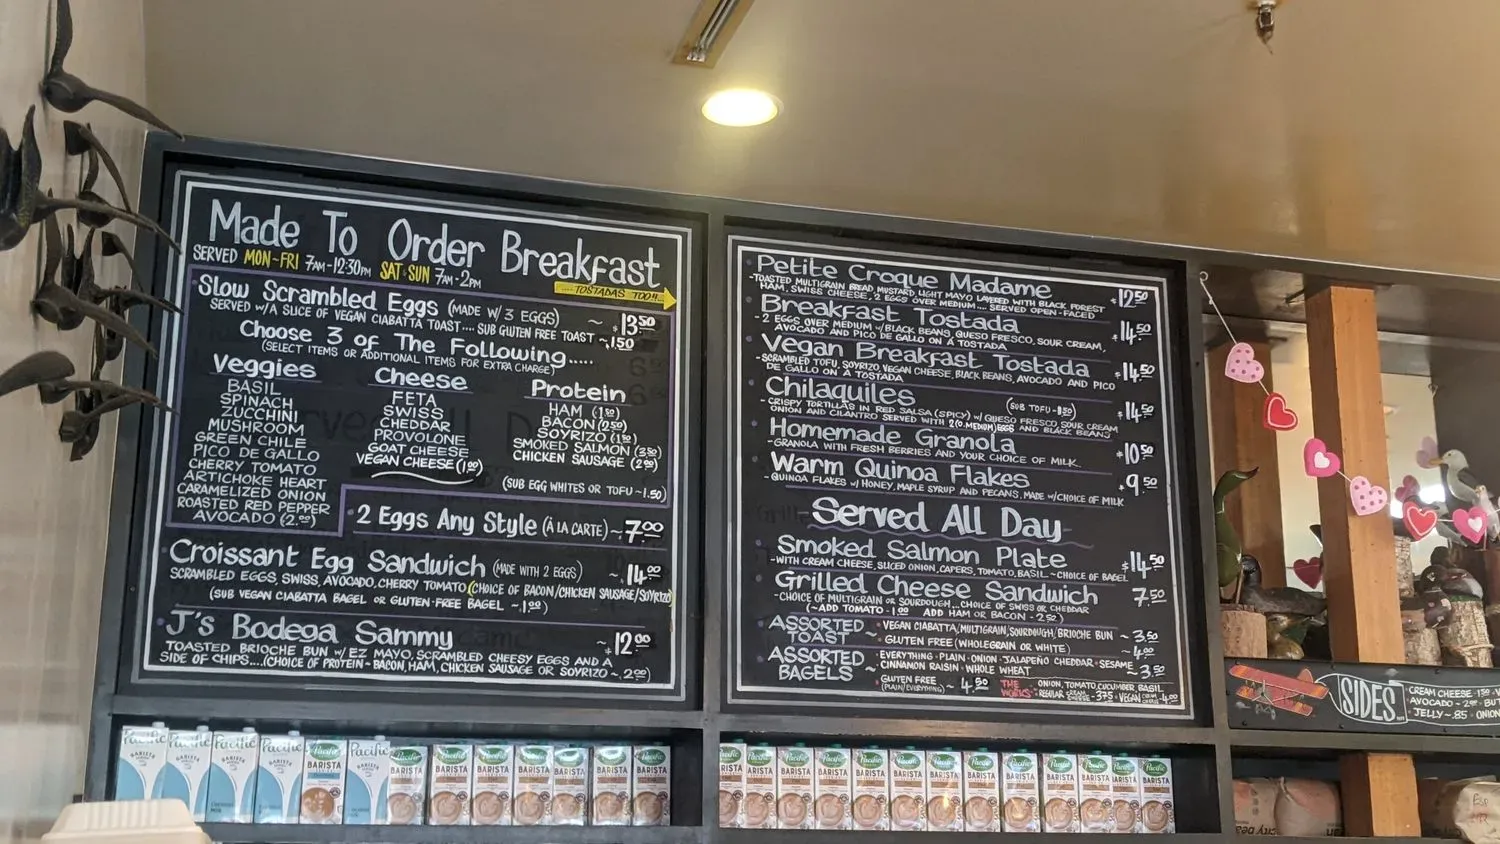 Made To Order Breakfast
SERVED MON-FRI 7AM-12:30PM SAT & SUN 7AM-2PM
....TOSTADAS TOO!!..
Slow Scrambled Eggs (MADE W/ 3 EGGS) ~ $13.50
SERVED W/A SLICE OF VEGAN CIABATTA TOAST.... SUB GLUTEN FREE TOAST ~ 1.50
Choose 3 of The Following.....
(SELECT ITEMS OR ADDITIONAL ITEMS FOR EXTRA CHARGE)
Veggies
BASIL
SPINACH
ZUCCHINI
MUSHROOM
GREEN CHILE
PICO DE GALLO
CHERRY TOMATO
ARTICHOKE HEART
CARAMELIZED ONION
ROASTED RED PEPPER
AVOCADO (2.00)
Cheese
FETA
SWISS
CHEDDAR
PROVOLONE
GOAT CHEESE
VEGAN CHEESE (1.00)
Protein
HAM (1.50)
BACON (2.50)
SOYRIZO (1.50)
SMOKED SALMON (3.50)
CHICKEN SAUSAGE (2.00)
(SUB EGG WHITES OR TOFU ~1.50)
2 Eggs Any Style (À LA CARTE) ~ 7.00
Croissant Egg Sandwich (MADE WITH 2 EGGS) ~ $14.00
SCRAMBLED EGGS, SWISS, AVOCADO, CHERRY TOMATO (CHOICE OF BACON/CHICKEN SAUSAGE/SOYRIZO)
(SUB VEGAN CIABATTA BAGEL OR GLUTEN-FREE BAGEL ~ 1.00)
J's Bodega Sammy ~ $12.00
TOASTED BRIOCHE BUN W/ EZ MAYO, SCRAMBLED CHEESY EGGS AND A
SIDE OF CHIPS....(CHOICE OF PROTEIN - BACON, HAM, CHICKEN SAUSAGE OR SOYRIZO ~ 2.00)
Petite Croque Madame $12.50
-TOASTED MULTIGRAIN BREAD MUSTARD LIGHT MAYO LAYERED WITH BLACK FOREST
HAM, SWISS CHEESE, 2 EGGS OVER MEDIUM... SERVED OPEN-FACED
Breakfast Tostada $14.50
- 2 EGGS OVER MEDIUM W/BLACK BEANS, QUESO FRESCO, SOUR CREAM,
AVOCADO AND PICO DE GALLO ON A TOSTADA
Vegan Breakfast Tostada $14.50
-SCRAMBLED TOFU, SOYRIZO, VEGAN CHEESE, BLACK BEANS, AVOCADO AND PICO
DE GALLO ON A TOSTADA
Chilaquiles (SUB TOFU - 1.50) $14.50
- CRISPY TORTILLAS IN RED SALSA (SPICY) W/ QUESO FRESCO, SOUR CREAM
ONION AND CILANTRO SERVED WITH 2(O.MEDIUM) EGGS AND BLACK BEANS
Homemade Granola $10.50
-GRANOLA WITH FRESH BERRIES AND YOUR CHOICE OF MILK.
Warm Quinoa Flakes $9.50
-QUINOA FLAKES W/ HONEY, MAPLE SYRUP AND PECANS, MADE W/CHOICE OF MILK
Served All Day
Smoked Salmon Plate $14.50
-WITH CREAM CHEESE, SLICED ONION, CAPERS, TOMATO, BASIL ~ CHOICE OF BAGEL
Grilled Cheese Sandwich 7.50
- CHOICE OF MULTIGRAIN OR SOURDOUGH...CHOICE OF SWISS OR CHEDDAR
(~ADD TOMATO - 1.00 ADD HAM OR BACON - 2.50)
ASSORTED TOAST
- VEGAN CIABATTA, MULTIGRAIN, SOURDOUGH, BRIOCHE BUN ~ 3.50
~ GLUTEN FREE (WHOLEGRAIN OR WHITE) ~ 4.00
ASSORTED BAGELS
- EVERYTHING · PLAIN · ONION · JALAPEÑO CHEDDAR · SESAME
CINNAMON RAISIN · WHOLE WHEAT ~ 3.50
GLUTEN FREE (PLAIN/EVERYTHING) ~ 4.50
THE WORKS ONION, TOMATO, CUCUMBER, BASIL
REGULAR CREAM CHEESE - 3.75 · VEGAN CREAM CHEESE 4.00
SIDES
CREAM CHEESE - 1.50
AVOCADO ~ 2.00
JELLY ~ .85 · ONION
Pacific
BARISTA